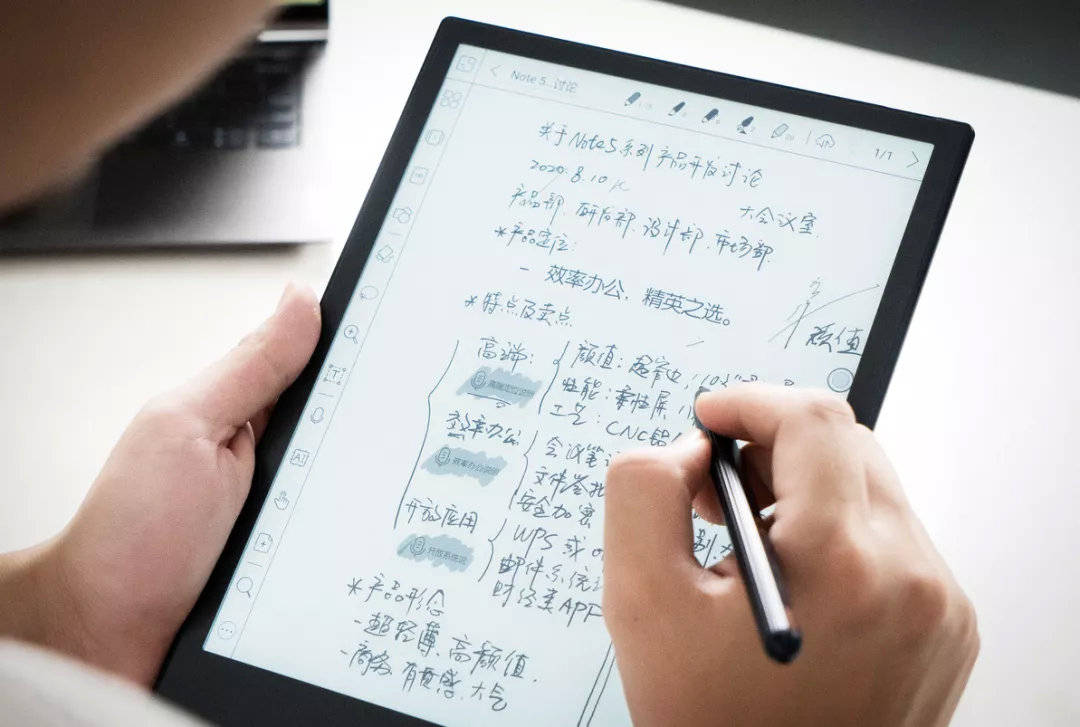 Note 5. 讨论
1/1
关于Note5系列产品开发讨论
2020.8.10
大会议室.
产品部. 研发部. 设计部. 市场部.
*产品定位:
- 效率办公, 精英之选。
颜值
*特点及卖点
高端:
颜值:
性能: 柔性屏,
工艺: CNC铝
效率办公
会议笔
文件签批
安全加密
开放应用
WPS 或
邮件系统
财经类APP
*产品形态
-超轻薄, 高颜值,
-商务, 有质感, 大气